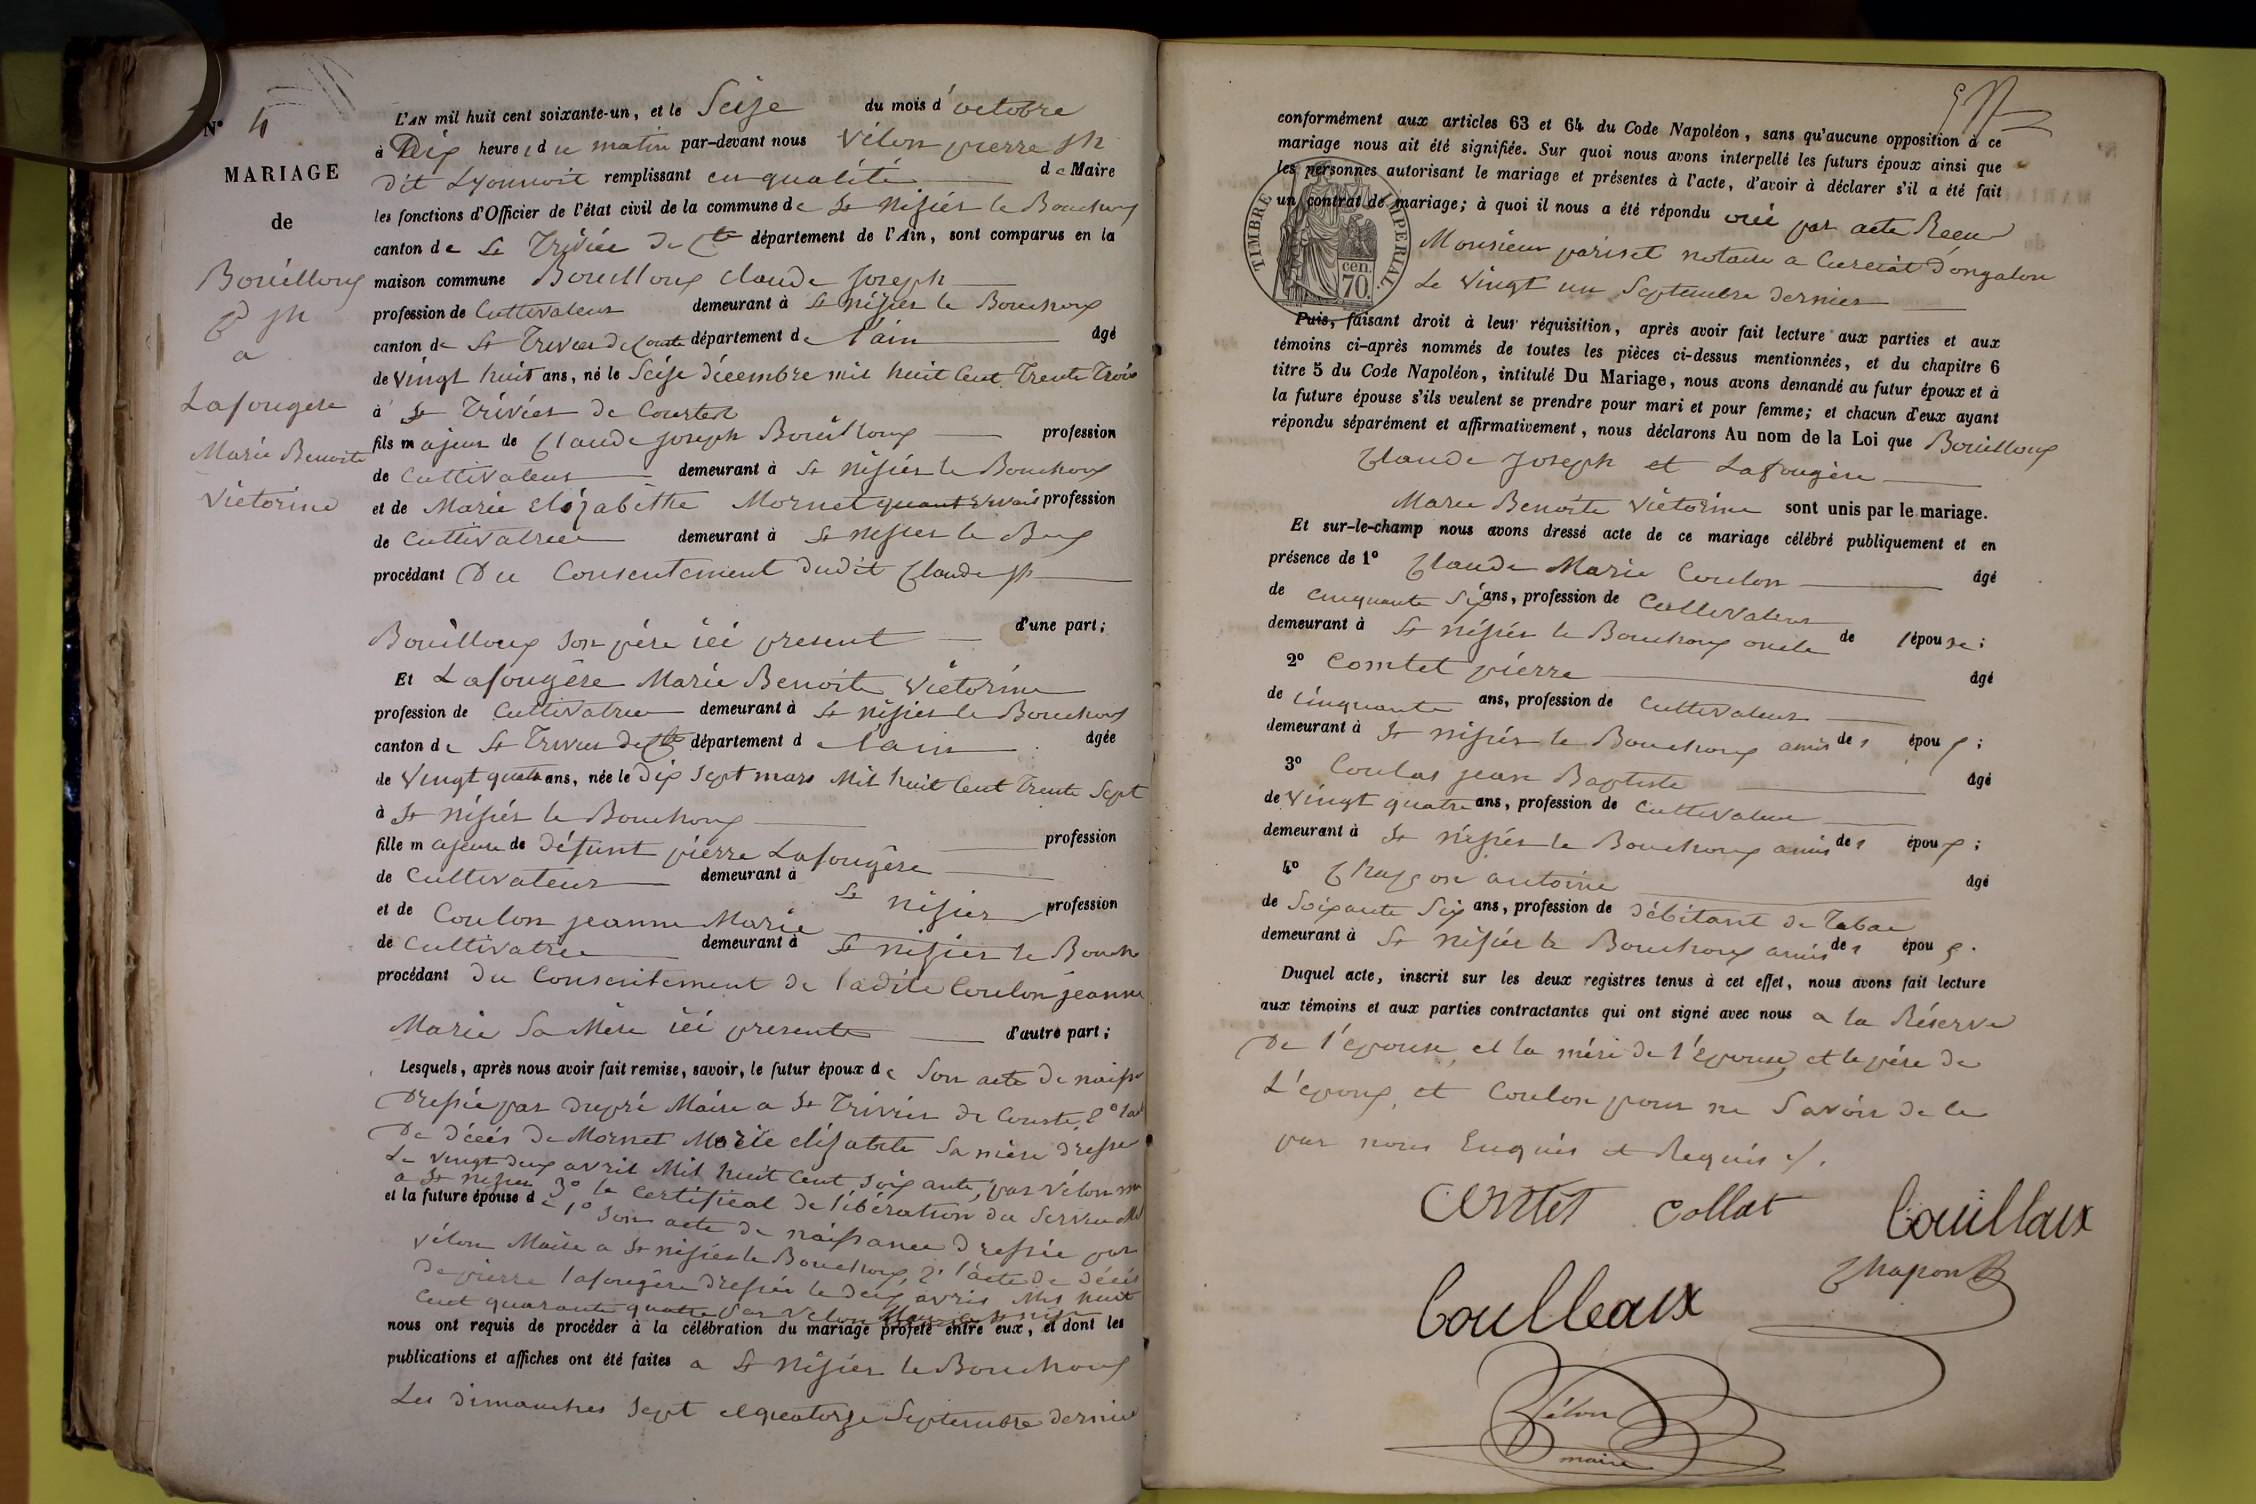 N° 4
MARIAGE
de
Bouilloux
Cd Jh
a
Lafougère
Marie Benoite
Victorine
L'AN mil huit cent soixante-un, et le Seize du mois d'octobre
à Dix heures du matin par-devant nous Vélon pierre Jh
dit Lyonnoit remplissant en qualité de Maire
les fonctions d'Officier de l'état civil de la commune de St Nisier le Bouchoux
canton de St Trivier de Cte département de l'Ain, sont comparus en la
maison commune Bouilloux Claude Joseph
profession de Cultivateur demeurant à St Nisier le Bouchoux
canton de St Trivier de Courte département de l'ain âgé
de vingt huit ans, né le Seize décembre mil huit Cent Trente Trois
à St Trivier de Courtes
fils majeur de Claude Joseph Bouilloux profession
de Cultivateur demeurant à St Nisier le Bouchoux
et de Marie Elizabethe Mornet quant vivait profession
de Cultivatrice demeurant à St Nisier le Bux
procédant Du Consentement dudit Claude Jh
Bouilloux son père ici present d'une part;
Et Lafougère Marie Benoite Victorine
profession de Cultivatrice demeurant à St Nisier le Bouchoux
canton de St Trivier de Cte département de l'ain âgée
de Vingt quatre ans, née le Dix Sept mars Mil huit Cent Trente Sept
à St Nisier le Bouchoux
fille majeure de défunt pierre Lafougère profession
de Cultivateur demeurant à St Nisier
et de Coulon jeanne Marie profession
de Cultivatrice demeurant à St Nisier le Bouch
procédant du Consentement de ladite Coulon jeanne
Marie Sa Mère ici presente d'autre part;
Lesquels, après nous avoir fait remise, savoir, le futur époux de Son acte de naiss
Dressée par dupré Maire a St Trivier de Courte, 2°
De décés de Mornet Marie elizabete Sa mère dressé
Le vingt deux avril Mil huit Cent Soixante, par Vélon
a St Nisier 3° le Certificat de libération du Service
et la future épouse de 1° Son acte de naissance Dressée par
Vélon Maire a St Nisier le Bouchoux, 2° l'acte de décés
De pierre lafougère dressée le deux avril Mil huit
Cent quarante quatre par Velon
nous ont requis de procéder à la célébration du mariage projeté entre eux, et dont les
publications et affiches ont été faites a St Nisier le Bouchoux
Les dimanches Sept et quatorze Septembre dernier
conformément aux articles 63 et 64 du Code Napoléon, sans qu'aucune opposition à ce
mariage nous ait été signifiée. Sur quoi nous avons interpellé les futurs époux ainsi que
les personnes autorisant le mariage et présentes à l'acte, d'avoir à déclarer s'il a été fait
un contrat de mariage; à quoi il nous a été répondu oui par acte Recu
Monsieur pariset notaire a Curciat d'ongalon
Le Vingt un Septembre dernier
TIMBRE IMPERIAL
cen.
70.
Puis, faisant droit à leur réquisition, après avoir fait lecture aux parties et aux
témoins ci-après nommés de toutes les pièces ci-dessus mentionnées, et du chapitre 6
titre 5 du Code Napoléon, intitulé Du Mariage, nous avons demandé au futur époux et à
la future épouse s'ils veulent se prendre pour mari et pour femme; et chacun d'eux ayant
répondu séparément et affirmativement, nous déclarons Au nom de la Loi que Bouilloux
Claude Joseph et Lafougère
Marie Benoite Victorine sont unis par le mariage.
Et sur-le-champ nous avons dressé acte de ce mariage célébré publiquement et en
présence de 1° Claude Marie Coulon âgé
de cinquante Six ans, profession de Cultivateur
demeurant à St Nisier le Bouchoux oncle de l'épouse;
2° Comtet pierre âgé
de Cinquante ans, profession de Cultivateur
demeurant à St Nisier le Bouchoux amis des époux;
3° Coulas jean Baptiste âgé
de Vingt quatre ans, profession de Cultivateur
demeurant à St Nisier le Bouchoux amis des époux;
4° Chapon antoine âgé
de Soixante Six ans, profession de débitant de Tabac
demeurant à St Nisier le Bouchoux amis des époux.
Duquel acte, inscrit sur les deux registres tenus à cet effet, nous avons fait lecture
aux témoins et aux parties contractantes qui ont signé avec nous a la Réserve
De l'epouse, et la mére de l'Epouse, et le pére de
L'epoux, et Coulon pour ne Savoir de ce
par nous Enquis et Requis /.
Comtet Collat Bouillaux
Boulleaux Chapon
Vélon
maire